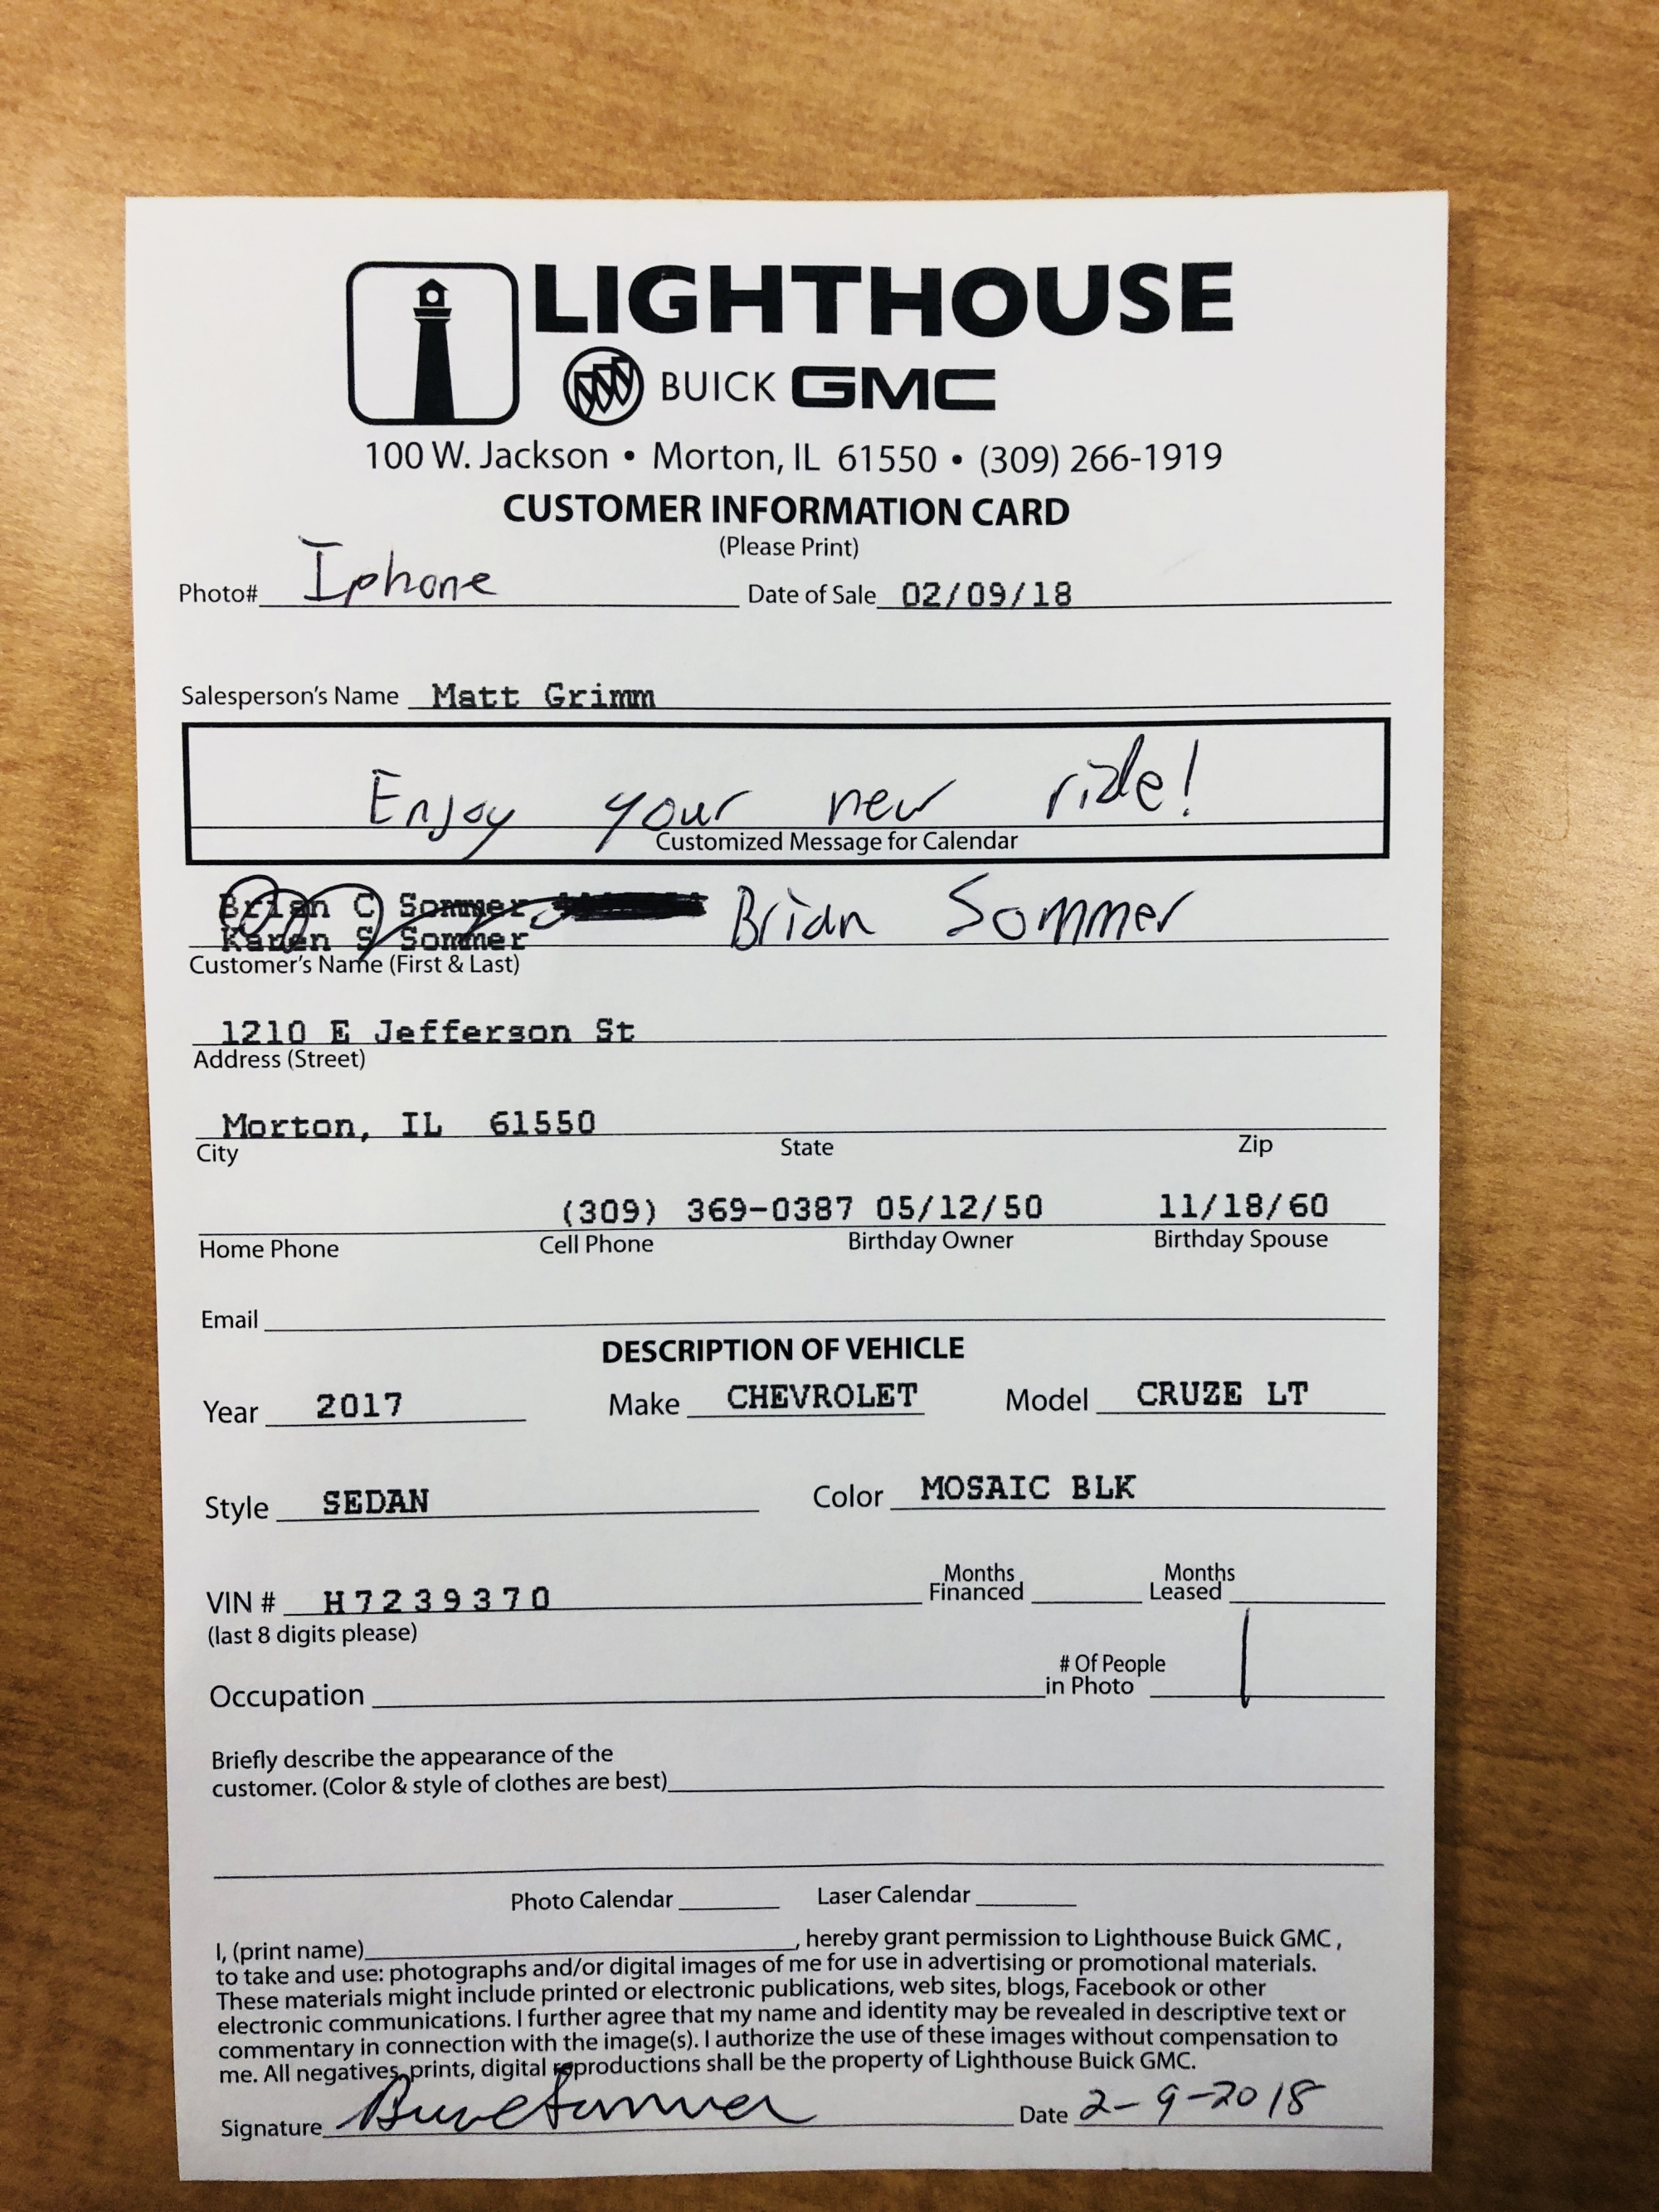 LIGHTHOUSE
BUICK GMC
100 W. Jackson • Morton, IL 61550 • (309) 266-1919
CUSTOMER INFORMATION CARD
(Please Print)
Photo# Iphone Date of Sale 02/09/18
Salesperson's Name Matt Grimm
Enjoy your new ride!
Customized Message for Calendar
Brian C Sommer Brian Sommer
Karen S Sommer
Customer's Name (First & Last)
1210 E Jefferson St
Address (Street)
Morton, IL 61550
City State Zip
(309) 369-0387 05/12/50 11/18/60
Home Phone Cell Phone Birthday Owner Birthday Spouse
Email
DESCRIPTION OF VEHICLE
Year 2017 Make CHEVROLET Model CRUZE LT
Style SEDAN Color MOSAIC BLK
Months Months
VIN # H7239370 Financed Leased
(last 8 digits please)
# Of People
Occupation in Photo 1
Briefly describe the appearance of the
customer. (Color & style of clothes are best)
Photo Calendar Laser Calendar
I, (print name) , hereby grant permission to Lighthouse Buick GMC,
to take and use: photographs and/or digital images of me for use in advertising or promotional materials.
These materials might include printed or electronic publications, web sites, blogs, Facebook or other
electronic communications. I further agree that my name and identity may be revealed in descriptive text or
commentary in connection with the image(s). I authorize the use of these images without compensation to
me. All negatives, prints, digital reproductions shall be the property of Lighthouse Buick GMC.
Signature Date 2-9-2018